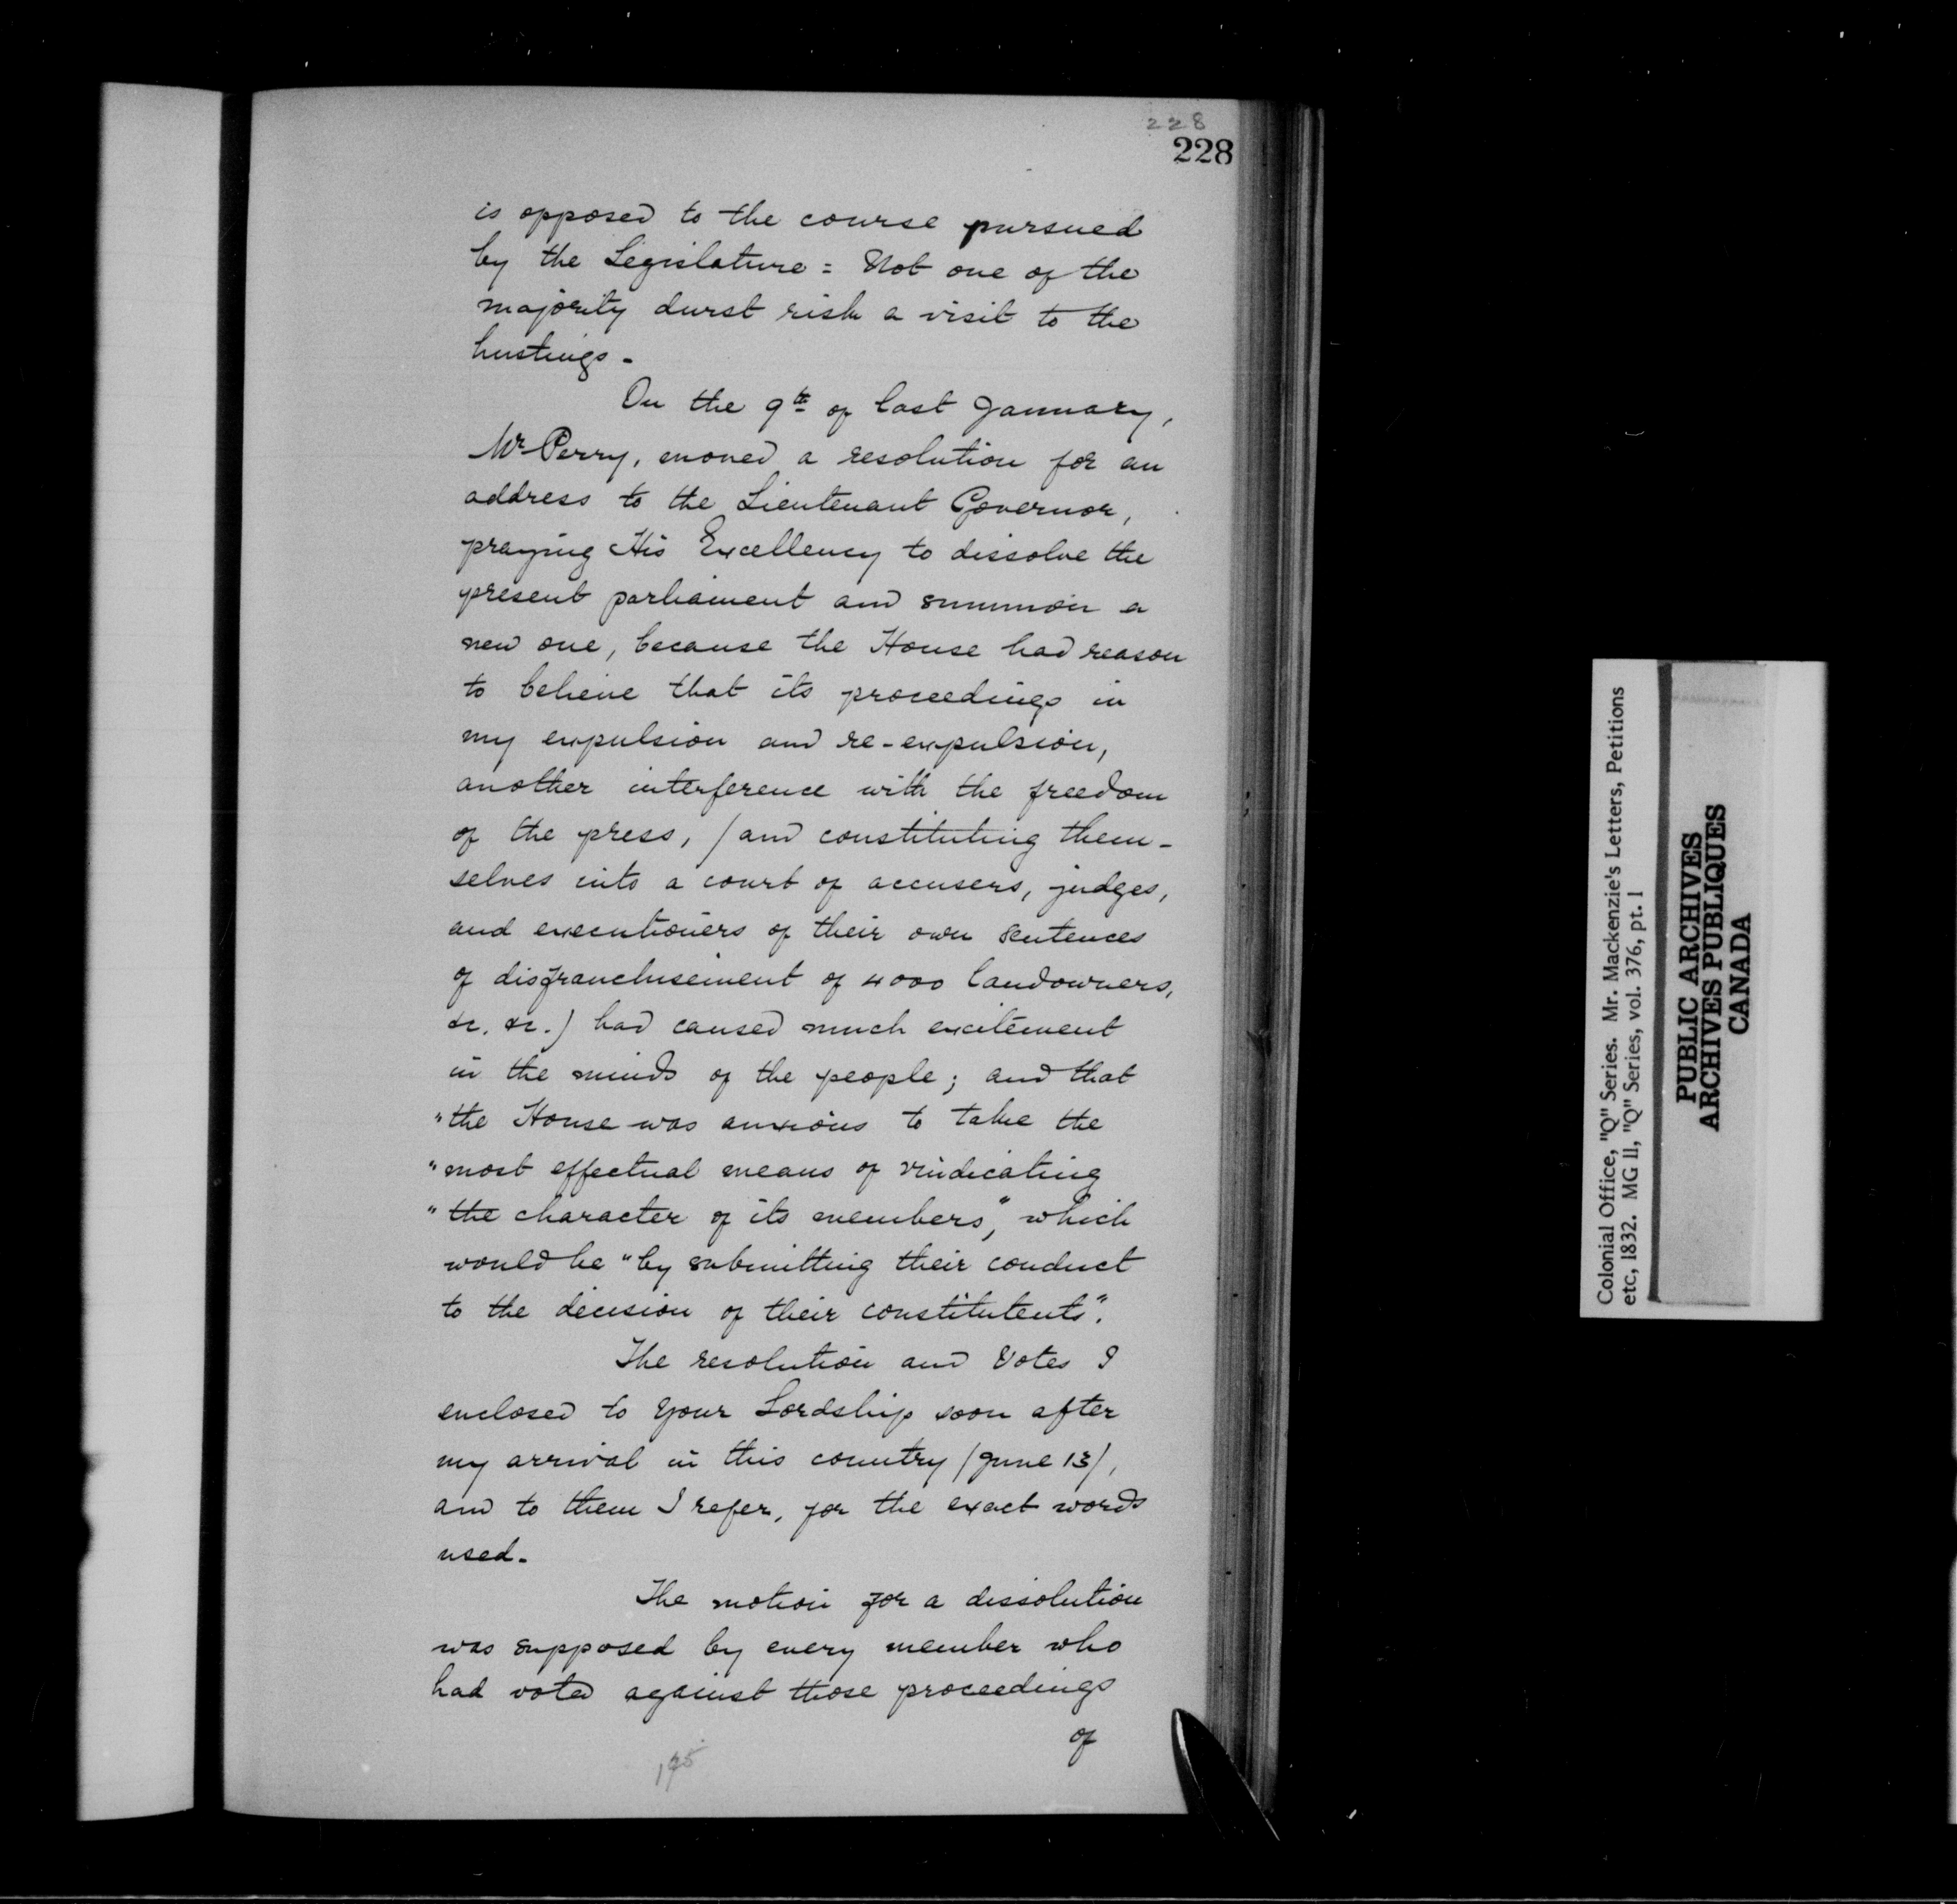 228
228
is opposed to the course pursued
by the Legislature = Not one of the
majority durst risk a visit to the
hustings -
On the 9th of last January,
Mr Perry, moved a resolution for an
address to the Lieutenant Governor,
praying His Excellency to dissolve the
present parliament and summon a
new one, because the House had reason
to believe that its proceedings in
my expulsion and re-expulsion,
another interference with the freedom
of the press, (and constituting them-
selves into a court of accusers, judges,
and executioners of their own sentences
of disfranchisement of 4000 landowners,
&c. &c.) had caused much excitement
in the minds of the people; and that
"the House was anxious to take the
"most effectual means of vindicating
"the character of its members," which
would be "by submitting their conduct
to the decision of their constitutents".
The resolution and Votes I
enclosed to Your Lordship soon after
my arrival in this country (June 13),
and to them I refer, for the exact words
used -
The motion for a dissolution
was supposed by every member who
had voted against those proceedings
of
195
Colonial Office, "Q" Series. Mr. Mackenzie's Letters, Petitions
etc, 1832. MG 11, "Q" Series, vol. 376, pt. 1
PUBLIC ARCHIVES
ARCHIVES PUBLIQUES
CANADA